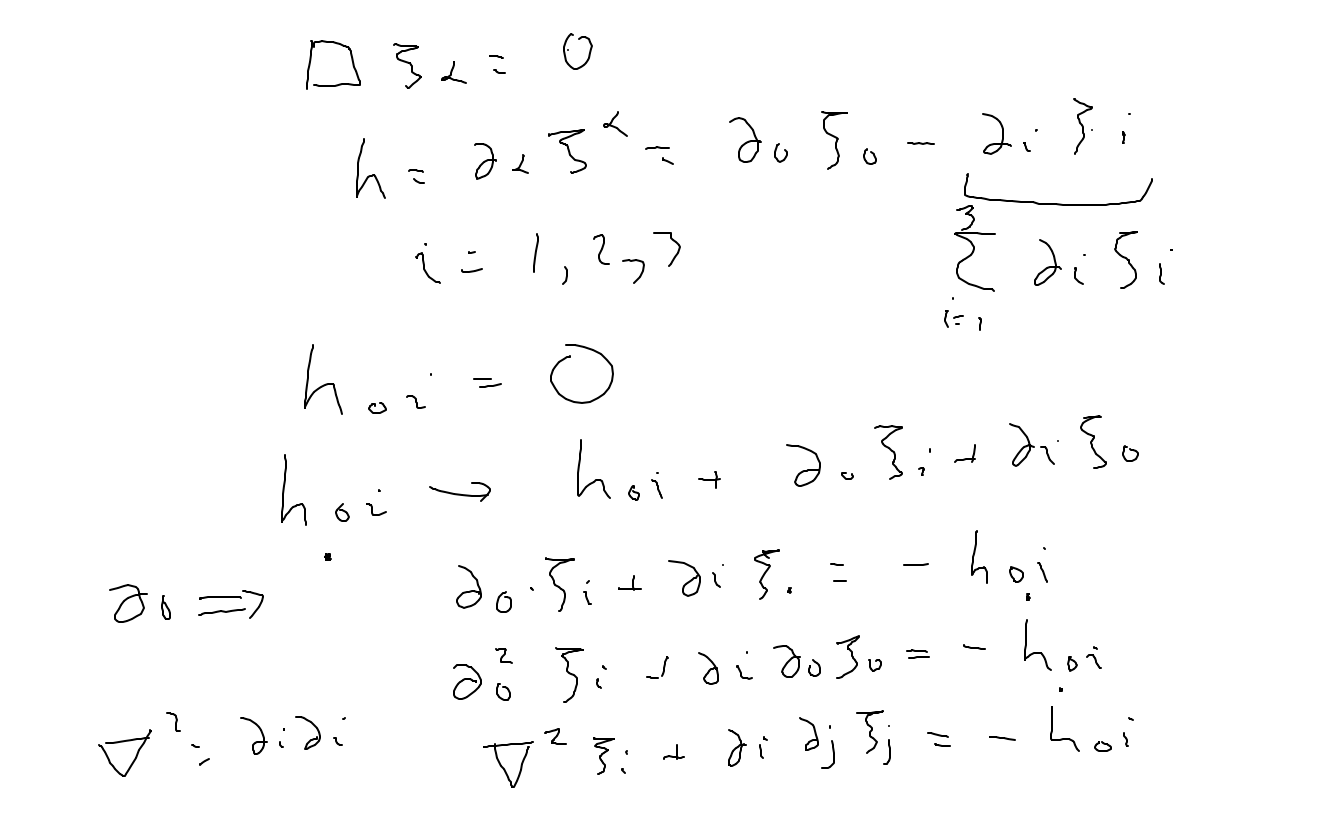 □ ξ_α = 0
h = ∂_α ξ^α = ∂_0 ξ_0 − ∂_i ξ_i
i = 1, 2, 3
∑_{i=1}^{3} ∂_i ξ_i
h_{0i} = 0
h_{0i} → h_{0i} + ∂_0 ξ_i + ∂_i ξ_0
∂_0 ⇒ ∂_0 ξ_i + ∂_i ξ_0 = − h_{0i}
∂_0^2 ξ_i + ∂_i ∂_0 ξ_0 = − ḣ_{0i}
∇^2 = ∂_i ∂_i
∇^2 ξ_i + ∂_i ∂_j ξ_j = − ḣ_{0i}